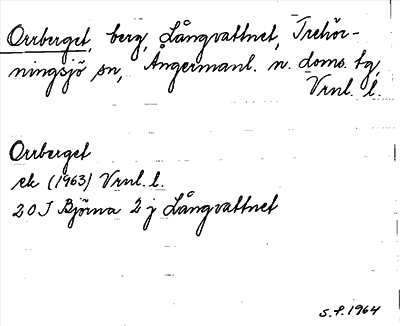 Orrberget, berg, Långvattnet, Trehör-
ningsjö sn, Ångermanl. n. doms. tg,
Vrnl. l.
Orrberget
ek (1963) Vrnl. l.
20 J Björna 2 j Långvattnet
S. F. 1964